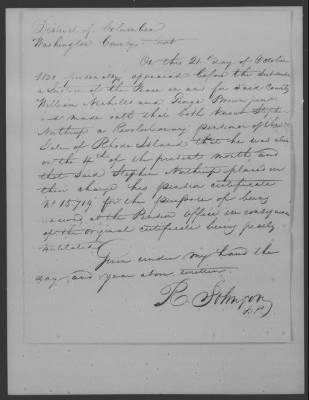 District of Columbia
Washington County
On this 21 Day of October
personally appeared before the Subscri
a Justice of the Peace in and for Said County
William Nichols and George Brown
and made oath that both knows Steph
Northup a Revolutionary pensioner of the
State of Rhode Island that he was alive
on the 4th of the present month, and
that Said Stephen Northup placed in
their charge his pension certificate
No 15,719 for the purpose of being
renewed at the Pension Office in consequence
of the original certificate being partly
mutilated
Given under my hand the
day and year above written
R. Johnson
J.P.